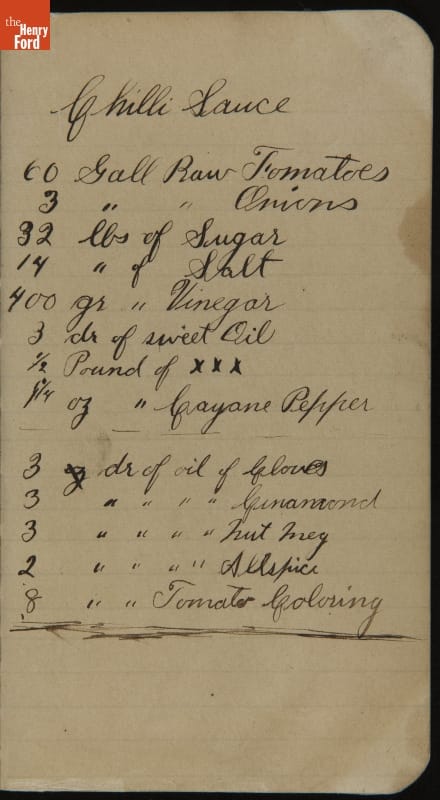 the
Henry
Ford
Chilli Sauce
60 Gall Raw Tomatoes
3 " " Onions
32 lbs of Sugar
14 " of Salt
400 gr " Vinegar
3 dr of sweet Oil
1/2 Pound of xxx
oz " Cayane Pepper
3 dr of oil of Cloves
3 " " " " Cinamond
3 " " " " Nut Meg
2 " " " " Allspice
8 " " Tomato Coloring